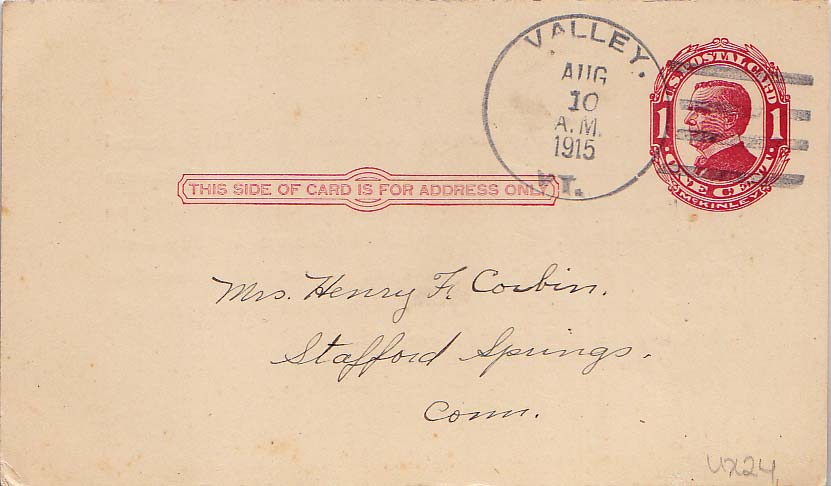 VALLEY.
AUG
10
A.M.
1915
VT.
U.S. POSTAL CARD
1 1
ONE CENT
McKINLEY
THIS SIDE OF CARD IS FOR ADDRESS ONLY
Mrs. Henry F. Corbin.
Stafford Springs.
Conn.
UX24